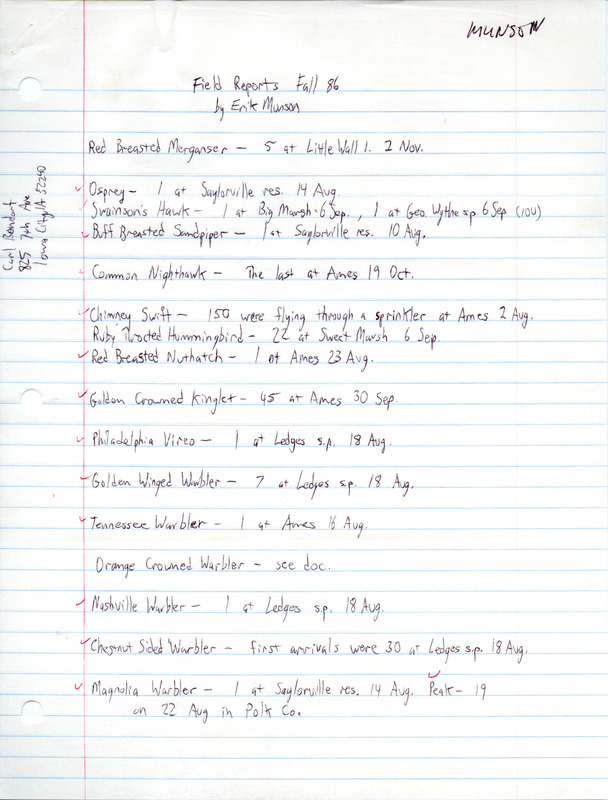 MUNSON
Field Reports Fall 86
by Erik Munson
Carl Bendorf
825 7th Ave
Iowa City IA 52240
Red Breasted Merganser – 5 at Little Wall l. 2 Nov.
Osprey – 1 at Saylorville res. 14 Aug.
Swainson's Hawk – 1 at Big Marsh 6 Sep., 1 at Geo. Wythe s.p. 6 Sep (IOU)
Buff Breasted Sandpiper – 1 at Saylorville res. 10 Aug.
Common Nighthawk – The last at Ames 19 Oct.
Chimney Swift – 150 were flying through a sprinkler at Ames 2 Aug.
Ruby Throcted Hummingbird – 22 at Sweet Marsh 6 Sep.
Red Breasted Nuthatch – 1 at Ames 23 Aug.
Golden Crowned Kinglet – 45 at Ames 30 Sep.
Philadelphia Vireo – 1 at Ledges s.p. 18 Aug.
Golden Winged Warbler – 7 at Ledges s.p. 18 Aug.
Tennessee Warbler – 1 at Ames 16 Aug.
Orange Crowned Warbler – see doc.
Nashville Warbler – 1 at Ledges s.p. 18 Aug.
Chestnut Sided Warbler – first arrivals were 30 at Ledges s.p. 18 Aug.
Magnolia Warbler – 1 at Saylorville res. 14 Aug. Peak – 19
on 22 Aug in Polk Co.